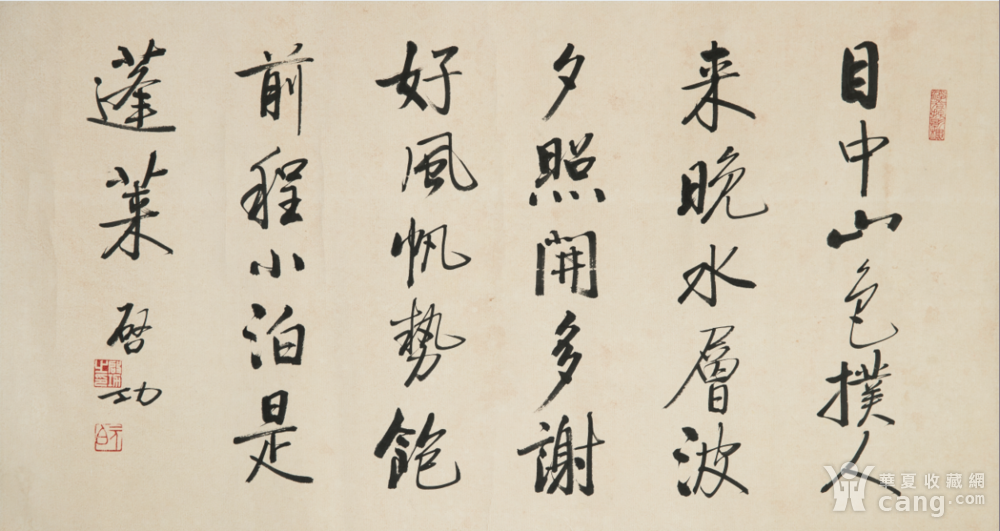 目中山色撲人
来晚水層波
夕照開多謝
好風帆勢飽
前程小泊是
蓬莱
啓功
華夏收藏網
cang.com